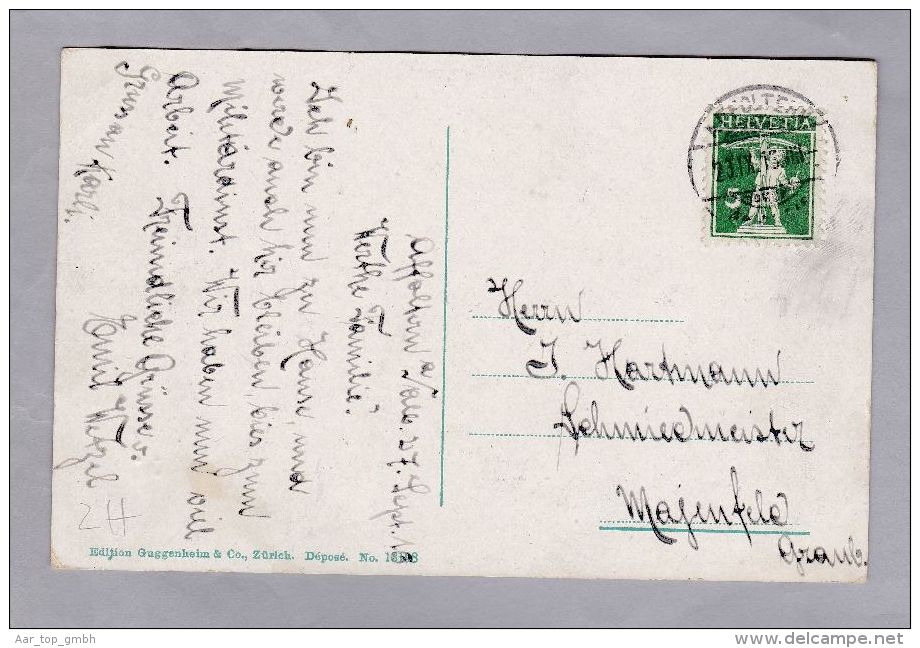 Affoltern a/Alb. 27. Sept.
Werthe Familie.
Ich bin nun zu Hause, und
werde auch hir bleiben, bis zum
Militärdinst. Wir haben nun viel
Arbeit. Freundliche Grüsse v.
Emil Wetzel
Gruss an Karli.
HELVETIA
5
Herrn
J. Hartmann
Schmiedmeister
Majenfeld
Graub.
Edition Guggenheim & Co., Zürich. Déposé. No.
Aar_top_gmbh
www.delcampe.net